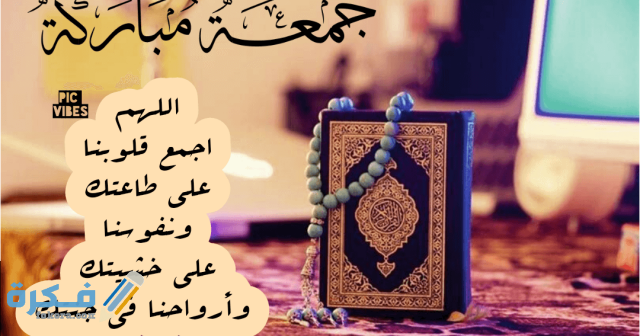 جُمعَةٌ مُبَارَكَةٌ
PIC
VIBES
اللهم
اجمع قلوبنا
على طاعتك
ونفوسنا
على خشيتك
وأرواحنا في جنتك
فكرة
القرآن الكريم